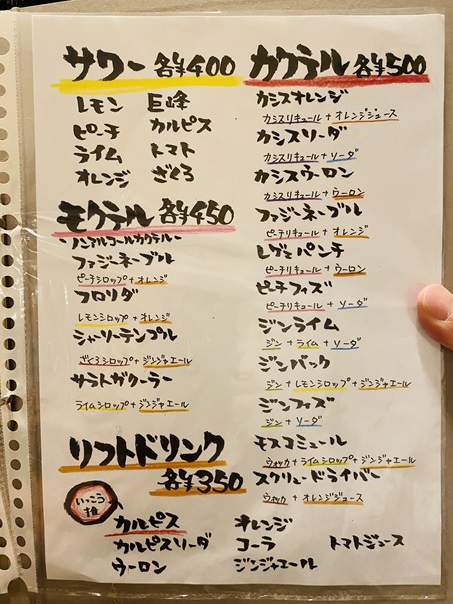 サワー 各¥400
レモン 巨峰
ピーチ カルピス
ライム トマト
オレンジ ざくろ
モクテル 各¥450
ノンアルコールカクテル
ファジーネーブル
ピーチシロップ+オレンジ
フロリダ
レモンシロップ+オレンジ
シャーリーテンプル
ざくろシロップ+ジンジャエール
サラトガクーラー
ライムシロップ+ジンジャエール
カクテル 各¥500
カシスオレンジ
カシスリキュール+オレンジジュース
カシスソーダ
カシスリキュール+ソーダ
カシスウーロン
カシスリキュール+ウーロン
ファジーネーブル
ピーチリキュール+オレンジ
レゲェパンチ
ピーチリキュール+ウーロン
ピーチフィズ
ピーチリキュール+ソーダ
ジンライム
ジン+ライム+ソーダ
ジンバック
ジン+レモンシロップ+ジンジャエール
ジンフィズ
ジン+ソーダ
モスコミュール
ウォッカ+ライムシロップ+ジンジャエール
スクリュードライバー
ウォッカ+オレンジジュース
ソフトドリンク
各¥350
いっこう
推
カルピス オレンジ
カルピスソーダ コーラ トマトジュース
ウーロン ジンジャエール